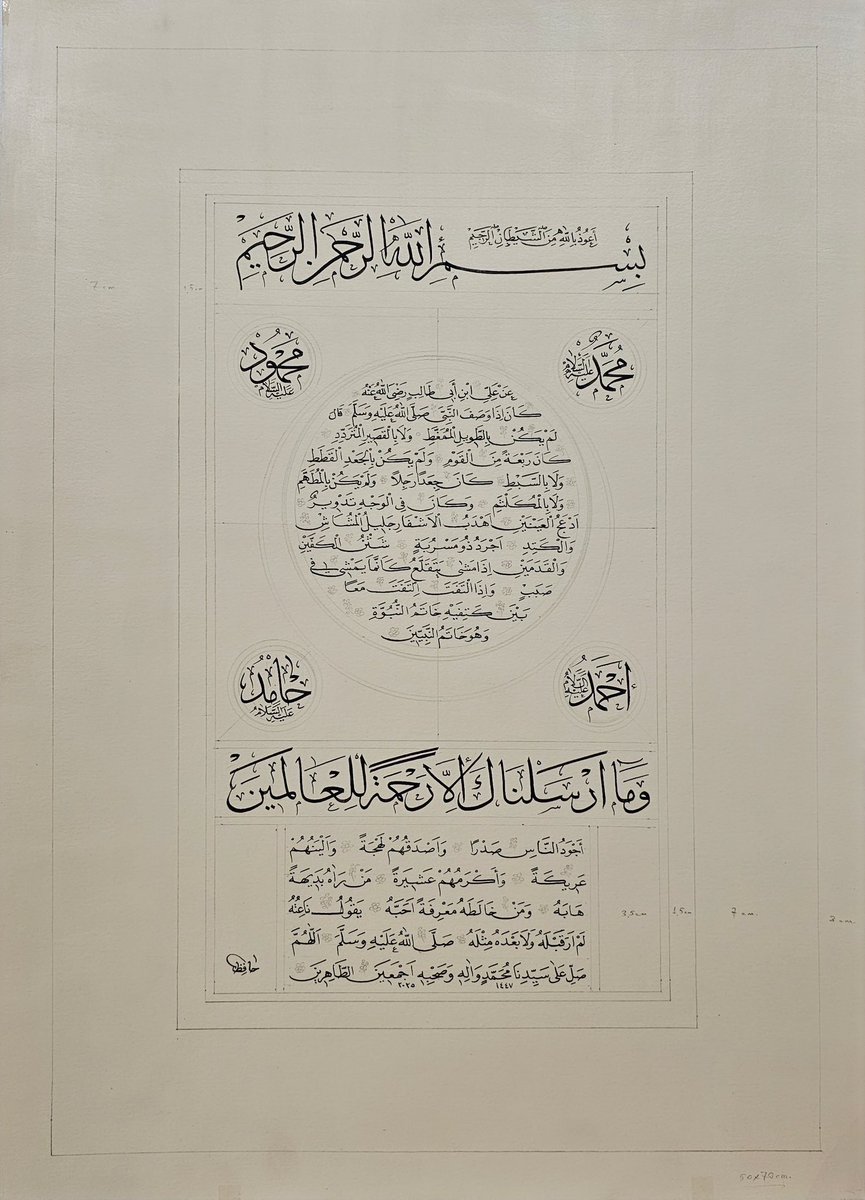 أعوذ بالله من الشيطان الرجيم
بِسْمِ اللهِ الرَّحْمٰنِ الرَّحِيمِ
مُحَمَّدٌ عليه السلام
مَحْمُودٌ عليه السلام
عَنْ عَلِيِّ ابْنِ أَبِي طَالِبٍ رَضِيَ اللهُ عَنْهُ
كَانَ إِذَا وَصَفَ النَّبِيَّ صَلَّى اللهُ عَلَيْهِ وَسَلَّمَ قَالَ
لَمْ يَكُنْ بِالطَّوِيلِ الْمُمَّغِطِ وَلَا بِالْقَصِيرِ الْمُتَرَدِّدِ
كَانَ رَبْعَةً مِنَ الْقَوْمِ وَلَمْ يَكُنْ بِالْجَعْدِ الْقَطَطِ
وَلَا بِالسَّبْطِ كَانَ جَعْدًا رَجِلًا وَلَمْ يَكُنْ بِالْمُطَهَّمِ
وَلَا بِالْمُكَلْثَمِ وَكَانَ فِي الْوَجْهِ تَدْوِيرٌ
أَدْعَجُ الْعَيْنَيْنِ أَهْدَبُ الْأَشْفَارِ جَلِيلُ الْمُشَاشِ
وَالْكَتَدِ أَجْرَدُ ذُو مَسْرُبَةٍ شَثْنُ الْكَفَّيْنِ
وَالْقَدَمَيْنِ إِذَا مَشَى يَتَقَلَّعُ كَأَنَّمَا يَمْشِي فِي
صَبَبٍ وَإِذَا الْتَفَتَ الْتَفَتَ مَعًا
بَيْنَ كَتِفَيْهِ خَاتَمُ النُّبُوَّةِ
وَهُوَ خَاتَمُ النَّبِيِّينَ
أَحْمَدُ عليه السلام
حَامِدٌ عليه السلام
وَمَا أَرْسَلْنَاكَ إِلَّا رَحْمَةً لِلْعَالَمِينَ
أَجْوَدُ النَّاسِ صَدْرًا وَأَصْدَقُهُمْ لَهْجَةً وَأَلْيَنُهُمْ
عَرِيكَةً وَأَكْرَمُهُمْ عَشِيرَةً مَنْ رَآهُ بَدِيهَةً
هَابَهُ وَمَنْ خَالَطَهُ مَعْرِفَةً أَحَبَّهُ يَقُولُ نَاعِتُهُ
لَمْ أَرَ قَبْلَهُ وَلَا بَعْدَهُ مِثْلَهُ صَلَّى اللهُ عَلَيْهِ وَسَلَّمَ اَللّٰهُمَّ
صَلِّ عَلَى سَيِّدِنَا مُحَمَّدٍ وَآلِهِ وَصَحْبِهِ أَجْمَعِينَ الطَّاهِرِينَ
١٤٤٧ ٢٠٢٥
حافظ
7 cm
1,5 cm
3,5 cm
1,5 cm
7 cm.
2 cm.
50x70 cm.